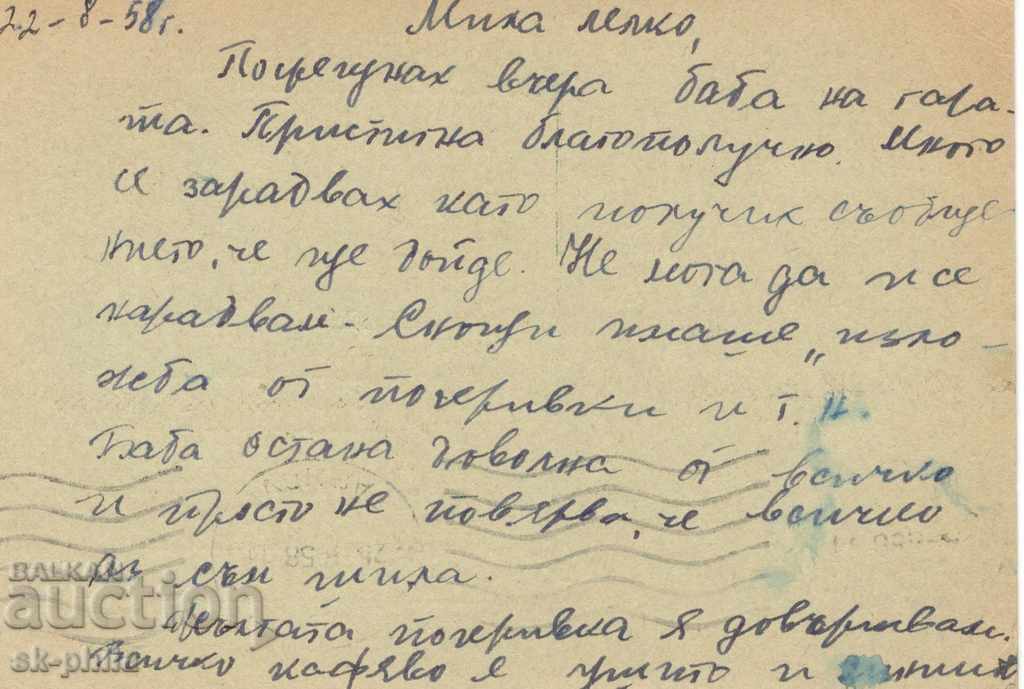 22-8-58г.
Мила лелко,
Посрещнах вчера баба на гара-
та. Пристигна благополучно. Много
се зарадвах като получих съобще-
нието, че ще дойде. Не мога да и се
нарадвам. Снощи имаше „изло-
жба от покривки и т.н.
Баба остана доволна от всичко
и просто не повярва, че всичко
аз съм шила.
Жълтата покривка я довършвам.
Всичко кафяво е ушито и синия
BALKAN
auction
sk-phila